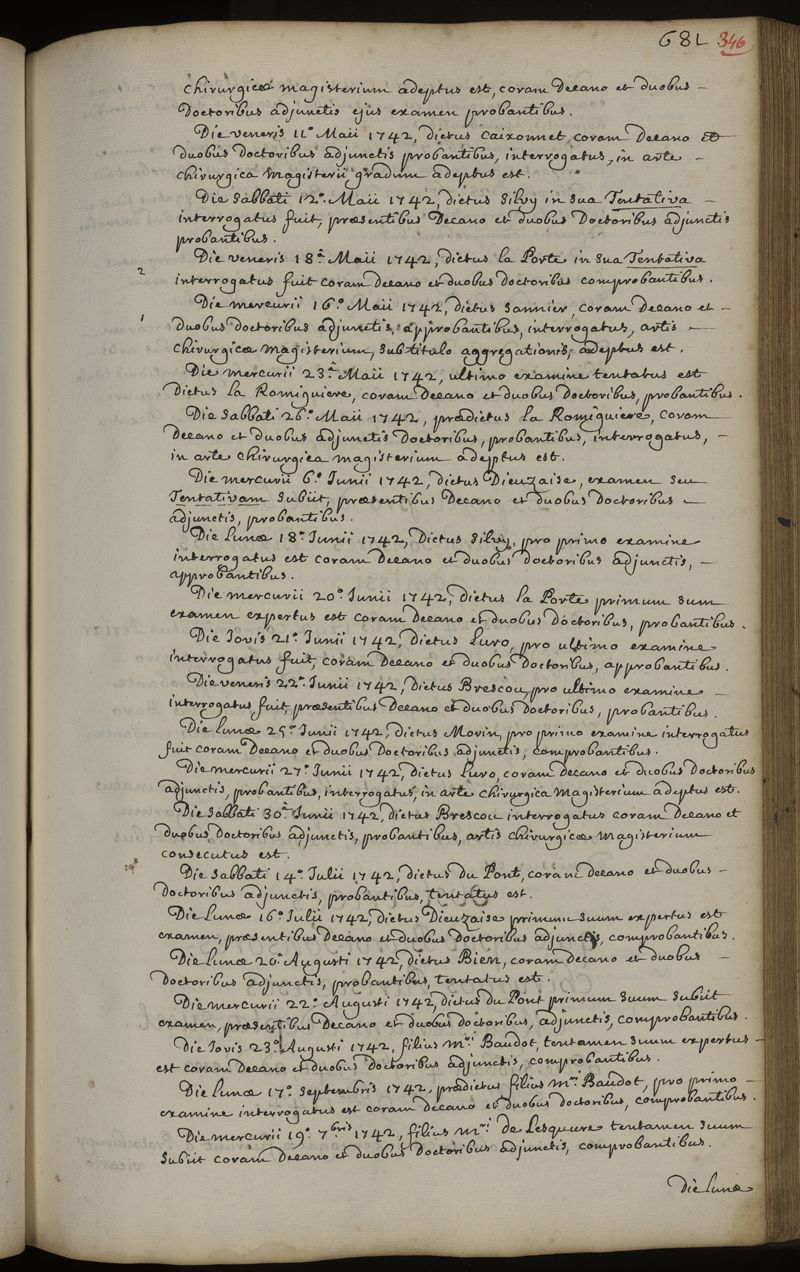 681 346
chirurgicæ magisterium adeptus est, coram Decano et duobus -
Doctoribus adjunctis ejus examen probantibus.
Die veneris 11.ª Maii 1742, dictus Caixonnet, coram Decano et
duobus Doctoribus adjunctis probantibus, interrogatus, in arte -
chirurgica magisterii gradum adeptus est.
Die Sabbati 12.ª Maii 1742, dictus Silvy in sua Tentativa -
interrogatus fuit, præsentibus Decano et duobus Doctoribus adjunctis
probantibus.
Die veneris 18.ª Maii 1742, dictus la Porte in sua Tentativa
2 interrogatus fuit coram Decano et duobus doctoribus comprobantibus.
Die mercurii 16.ª Maii 1742, dictus Sannier, coram Decano et -
1 duobus doctoribus adjunctis, approbantibus, interrogatus, artis -
chirurgicæ magisterium, sub titulo aggregationis, adeptus est.
Die mercurii 23.ª Maii 1742, ultimo examine tentatus est
Dictus la Romiguiere, coram Decano et duobus Doctoribus, probantibus.
Die Sabbati 26.ª Maii 1742, prædictus la Romiguiere, coram
Decano et duobus adjunctis Doctoribus, probantibus, interrogatus, -
in arte chirurgica magisterium adeptus est.
Die mercurii 6.ª Junii 1742, dictus Dieuzaise, examen seu
Tentativam subiit, præsentibus Decano et duobus Doctoribus -
adjunctis, probantibus.
Die Lunæ 18.ª Junii 1742, Dictus Silvy, pro primo examine
interrogatus est coram Decano et duobus doctoribus adjunctis, -
approbantibus.
Die mercurii 20.ª Junii 1742, dictus la Porte primum suum
examen expertus est coram Decano et duobus Doctoribus, probantibus.
Die Jovis 21.ª Junii 1742, Dictus Luro, pro ultimo examine
interrogatus fuit, coram Decano et duobus Doctoribus, approbantibus.
Die veneris 22.ª Junii 1742, Dictus Brescou, pro ultimo examine -
interrogatus fuit, præsentibus Decano et duobus Doctoribus, probantibus.
Die Lunæ 25.ª Junii 1742, dictus Movin, pro primo examine interrogatus
fuit coram Decano et duobus Doctoribus adjunctis, comprobantibus.
Die mercurii 27.ª Junii 1742, dictus Luro, coram Decano et duobus Doctoribus
adjunctis, probantibus, interrogatus, in arte chirurgica Magisterium adeptus est.
Die Sabbati 30.ª Junii 1742, dictus Brescou interrogatus coram Decano et
duobus Doctoribus adjunctis, probantibus, artis chirurgicæ magisterium
consecutus est.
Die Sabbati 14.ª Julii 1742, dictus du Pont, coram decano et duobus -
doctoribus adjunctis, probantibus, tentatus est.
Die Lunæ 16.ª Julii 1742, dictus Dieuzaise primum suum expertus est
examen, præsentibus Decano et duobus Doctoribus adjunctis, comprobantibus.
Die Lunæ 20.ª Augusti 1742, dictus Bien, coram decano et duobus -
Doctoribus adjunctis, probantibus, tentatus est.
Die mercurii 22.ª Augusti 1742, dictus du Pont primum suum subiit
examen, præsentibus Decano et duobus doctoribus, adjunctis, comprobantibus.
Die Jovis 23.ª Augusti 1742, filius m.ri Baudot, tentamen suum expertus -
est coram Decano et duobus doctoribus adjunctis, comprobantibus.
Die Lunæ 17.ª Septembris 1742, prædictus filius m.ri Baudot, pro primo -
examine interrogatus est coram decano et duobus doctoribus, comprobantibus.
Die mercurii 19.ª 7.bris 1742, filius m.ri de Lesquure tentamen suum
subiit coram Decano et duobus Doctoribus adjunctis, comprobantibus.
Die Lunæ